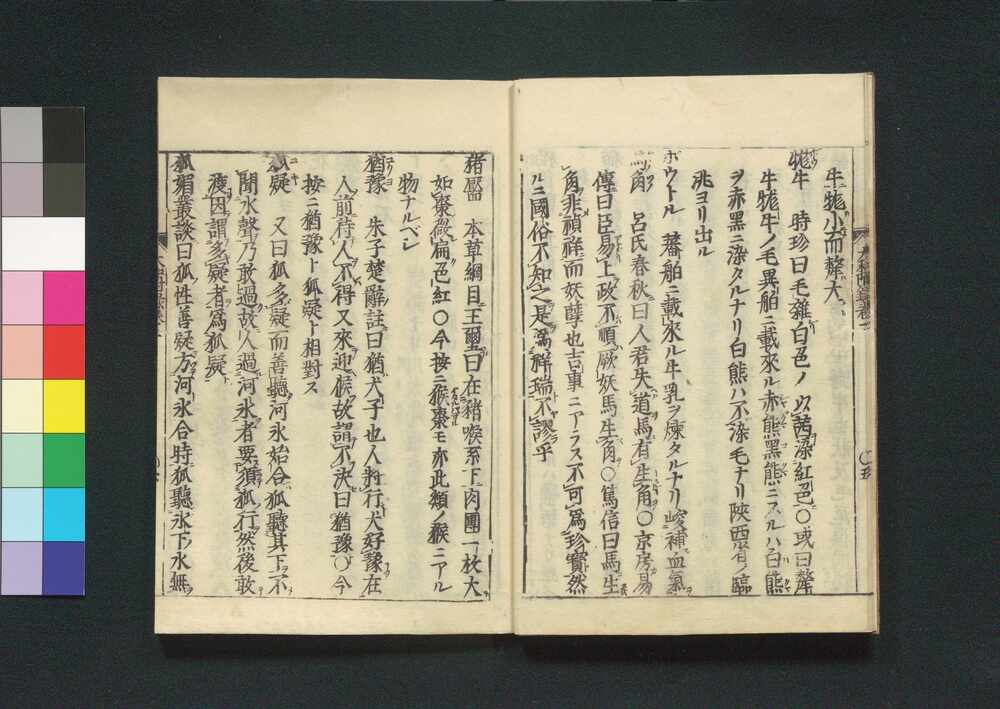 牛牻小而犛大
牻牛 時珍曰毛雜白色ノ以茜染紅色〇或曰犛
牛牻牛ノ毛異舶ニ載來ル赤熊黒熊ニスルハ白熊
ヲ赤黒ニ染タルナリ白熊ハ不染毛ナリ陝西省ノ臨
洮ヨリ出ル
ボウトル 蕃舶ニ載來ル牛乳ヲ煉タルナリ峻補血氣
馬角 呂氏春秋曰人君失道馬有生角〇京房易
傳曰臣易上政不順厥妖馬生角〇篤信曰馬生
角非禎祥而妖孽也吉事ニアラス不可為珍寶然
ルニ國俗不知之是為祥瑞不謬乎
猪靨 本草綱目王璽曰在猪喉系下肉團一枚大
如棗微扁色紅〇今按ニ猴棗モ亦此類ノ猴ニアル
物ナルベシ
猶豫 朱子楚辭註曰猶犬子也人対行犬好豫在
人前待人不得又來迎候故謂不決曰猶豫〇今
按ニ猶豫ト狐疑ト相對ス
狐疑 又曰狐多疑而善聽河氷始合狐聽其下不
聞水聲乃敢過故人過河氷者要須狐行然後敢
渡因謂多疑者為狐疑
狐媚叢談曰狐性善疑方河氷合時狐聽氷下水無